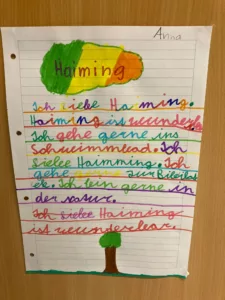 Anna
Haiming
Ich liebe Haiming.
Haiming ist wunderba
Ich gehe gerne ins
Schwimmbad. Ich
liebe Haimming. Ich
gehe gerne zur
ek. Ich bin gerne in
der natur.
Ich liebe Haiming
ist wunderbar.